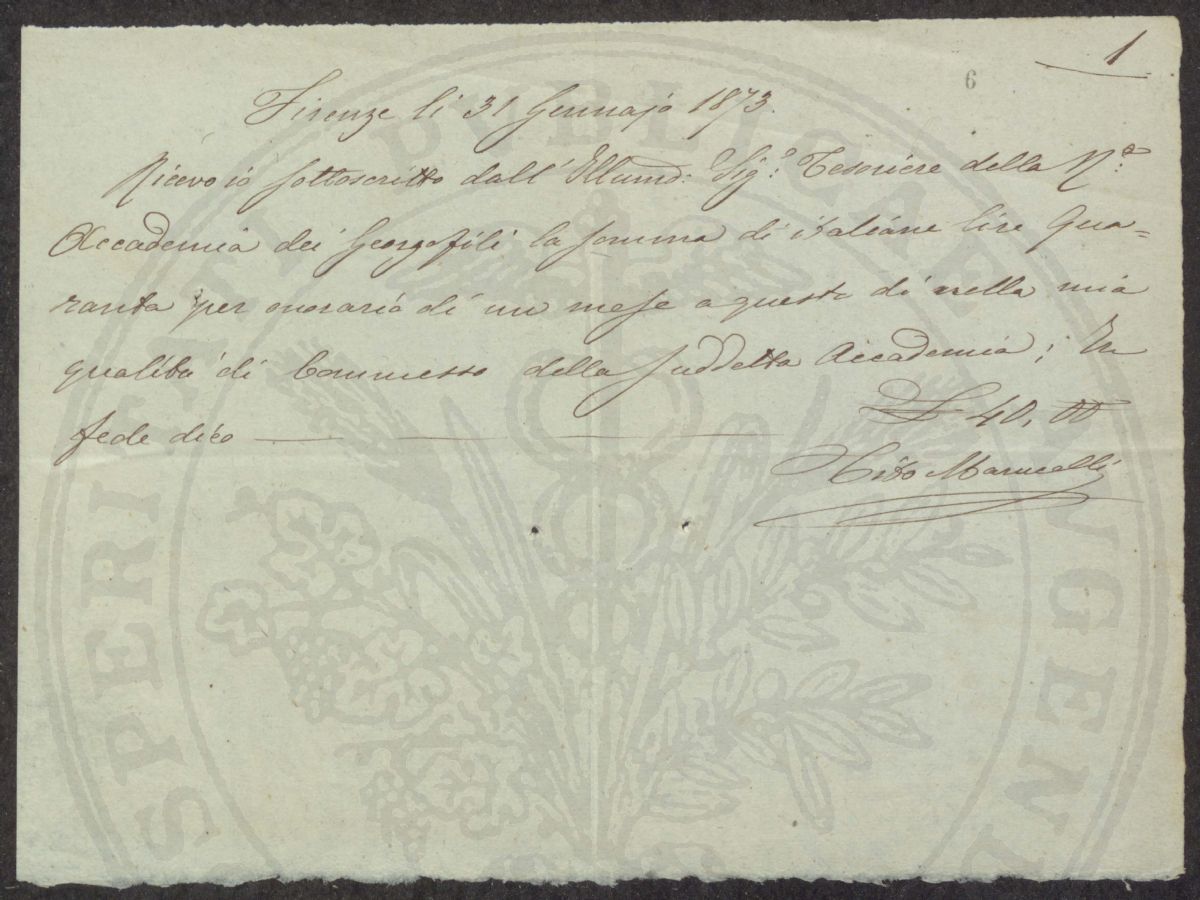 1
6
Firenze li 31 Gennajo 1873.
Ricevo io sottoscritto dall' Illumo: Sig.e Tesoriere della Ra.
Accademia dei Georgofili la somma di italiane lire Qua=
ranta per onorario di un mese a questo dì nella mia
qualità di Commesso della suddetta Accademia; In
fede dico — — — £ 40,00
Tito Marucelli
PUBLICAE
SPERITATI
AUGENDAE